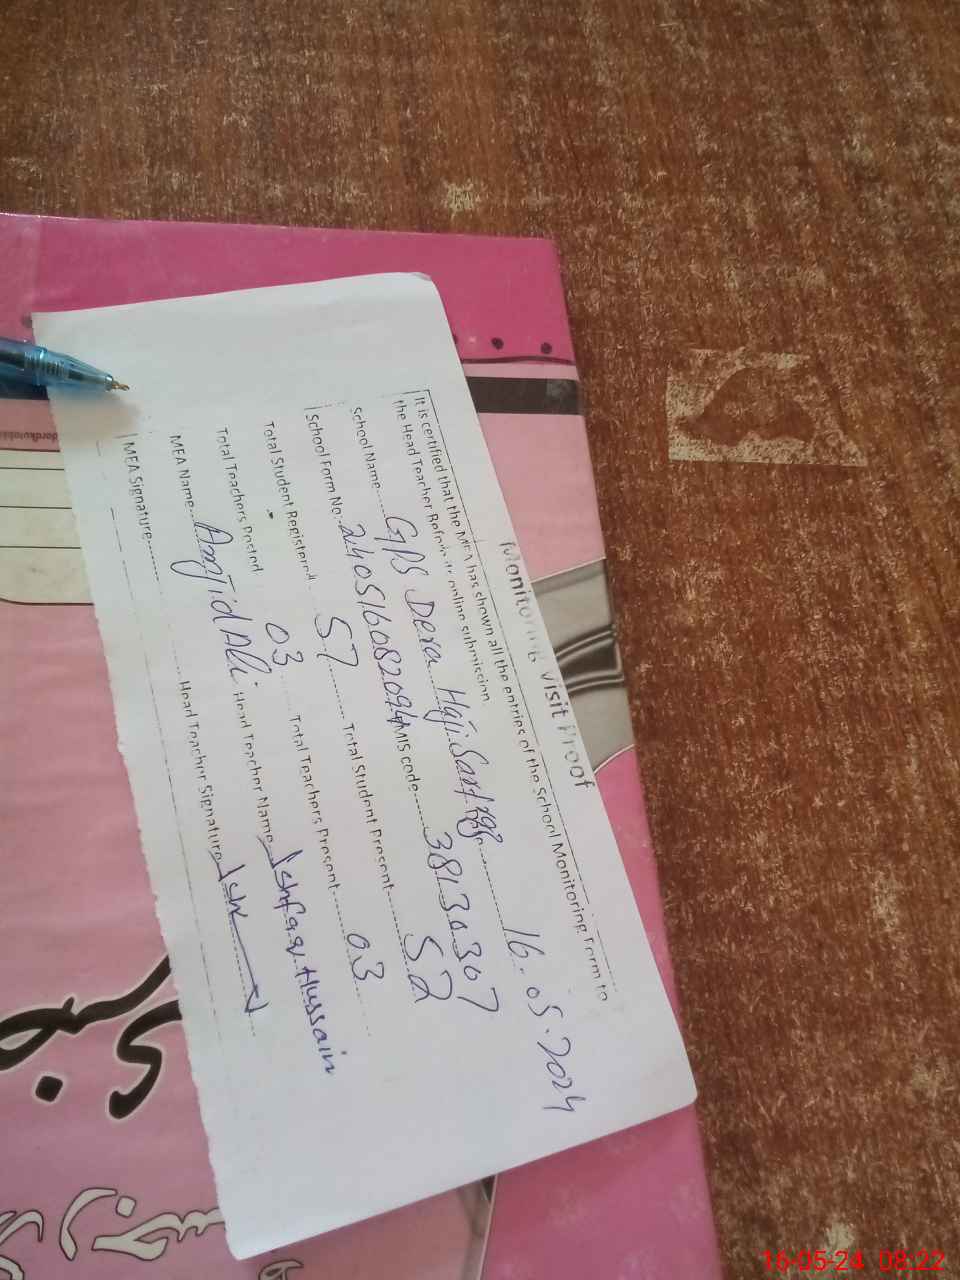 Monitoring Visit Proof
It is certified that the MEA has shown all the entries of the School Monitoring Form to
the Head Teacher Before its online submission.
School Name......GPS Dera Haji..........16.05.2024
School Form No. 240516082094 EMIS code......38130367
Total Student Registered 57 ...... Total Student Present......52
Total Teachers Posted 03 ... Total Teachers Present......03
MEA Name...Amjid Ali Head Teacher Name Ishfaq Hussain
MEA Signature........ Head Teacher Signature
16-05-24 08:22